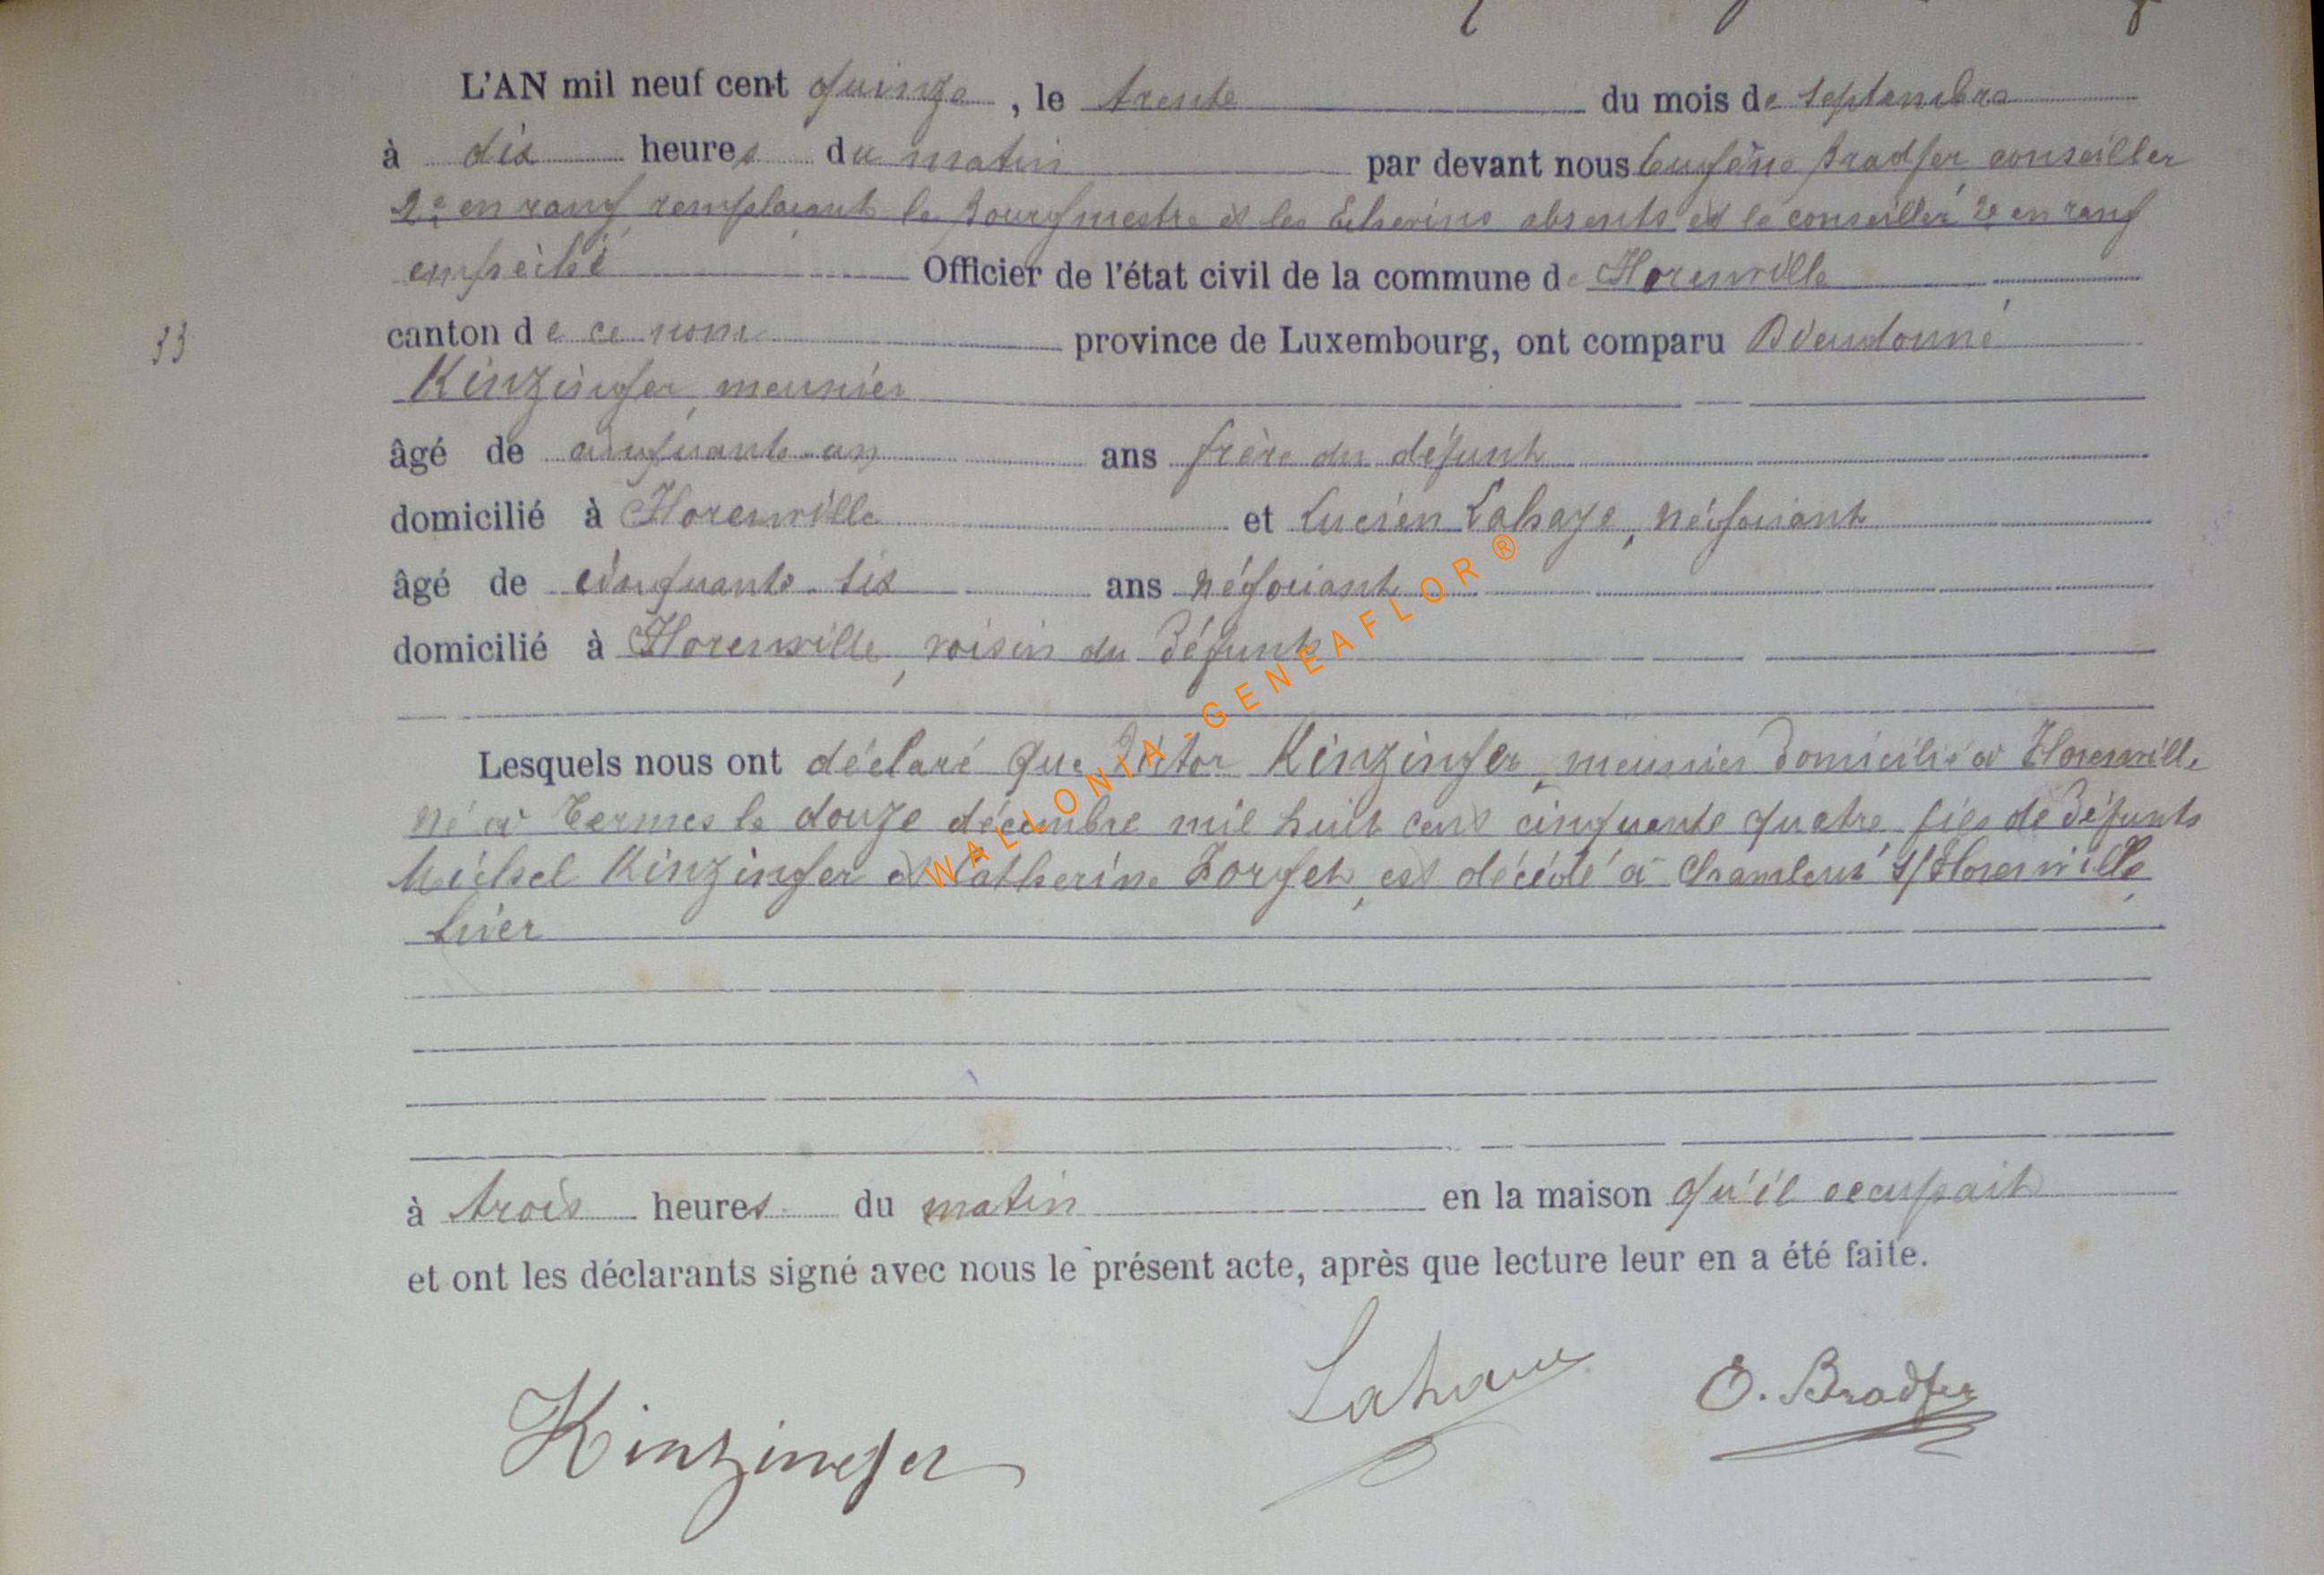 L'AN mil neuf cent quinze, le trente du mois de septembre
à dix heures du matin par devant nous Eugène Bradfer conseiller
2e en rang remplaçant le Bourgmestre et les Echevins absents et le conseiller 2e en rang
empêché Officier de l'état civil de la commune de Florenville
33
canton de ce nom province de Luxembourg, ont comparu Dieudonné
Kinzinger, meunier
âgé de cinquante-un ans frère du défunt
domicilié à Florenville et Lucien Lahaye, négociant
âgé de cinquante-six ans négociant
domicilié à Florenville, voisin du défunt
Lesquels nous ont déclaré que Victor Kinzinger, meunier domicilié à Florenville
né à Termes le douze décembre mil huit cent cinquante quatre fils de défunts
Michel Kinzinger et Catherine Zorget, est décédé à Chameleux s/Florenville,
hier
à trois heures du matin en la maison qu'il occupait
et ont les déclarants signé avec nous le présent acte, après que lecture leur en a été faite.
Kinzinger Lahaye E. Bradfer
WALLONIA-GENEAFLOR ®